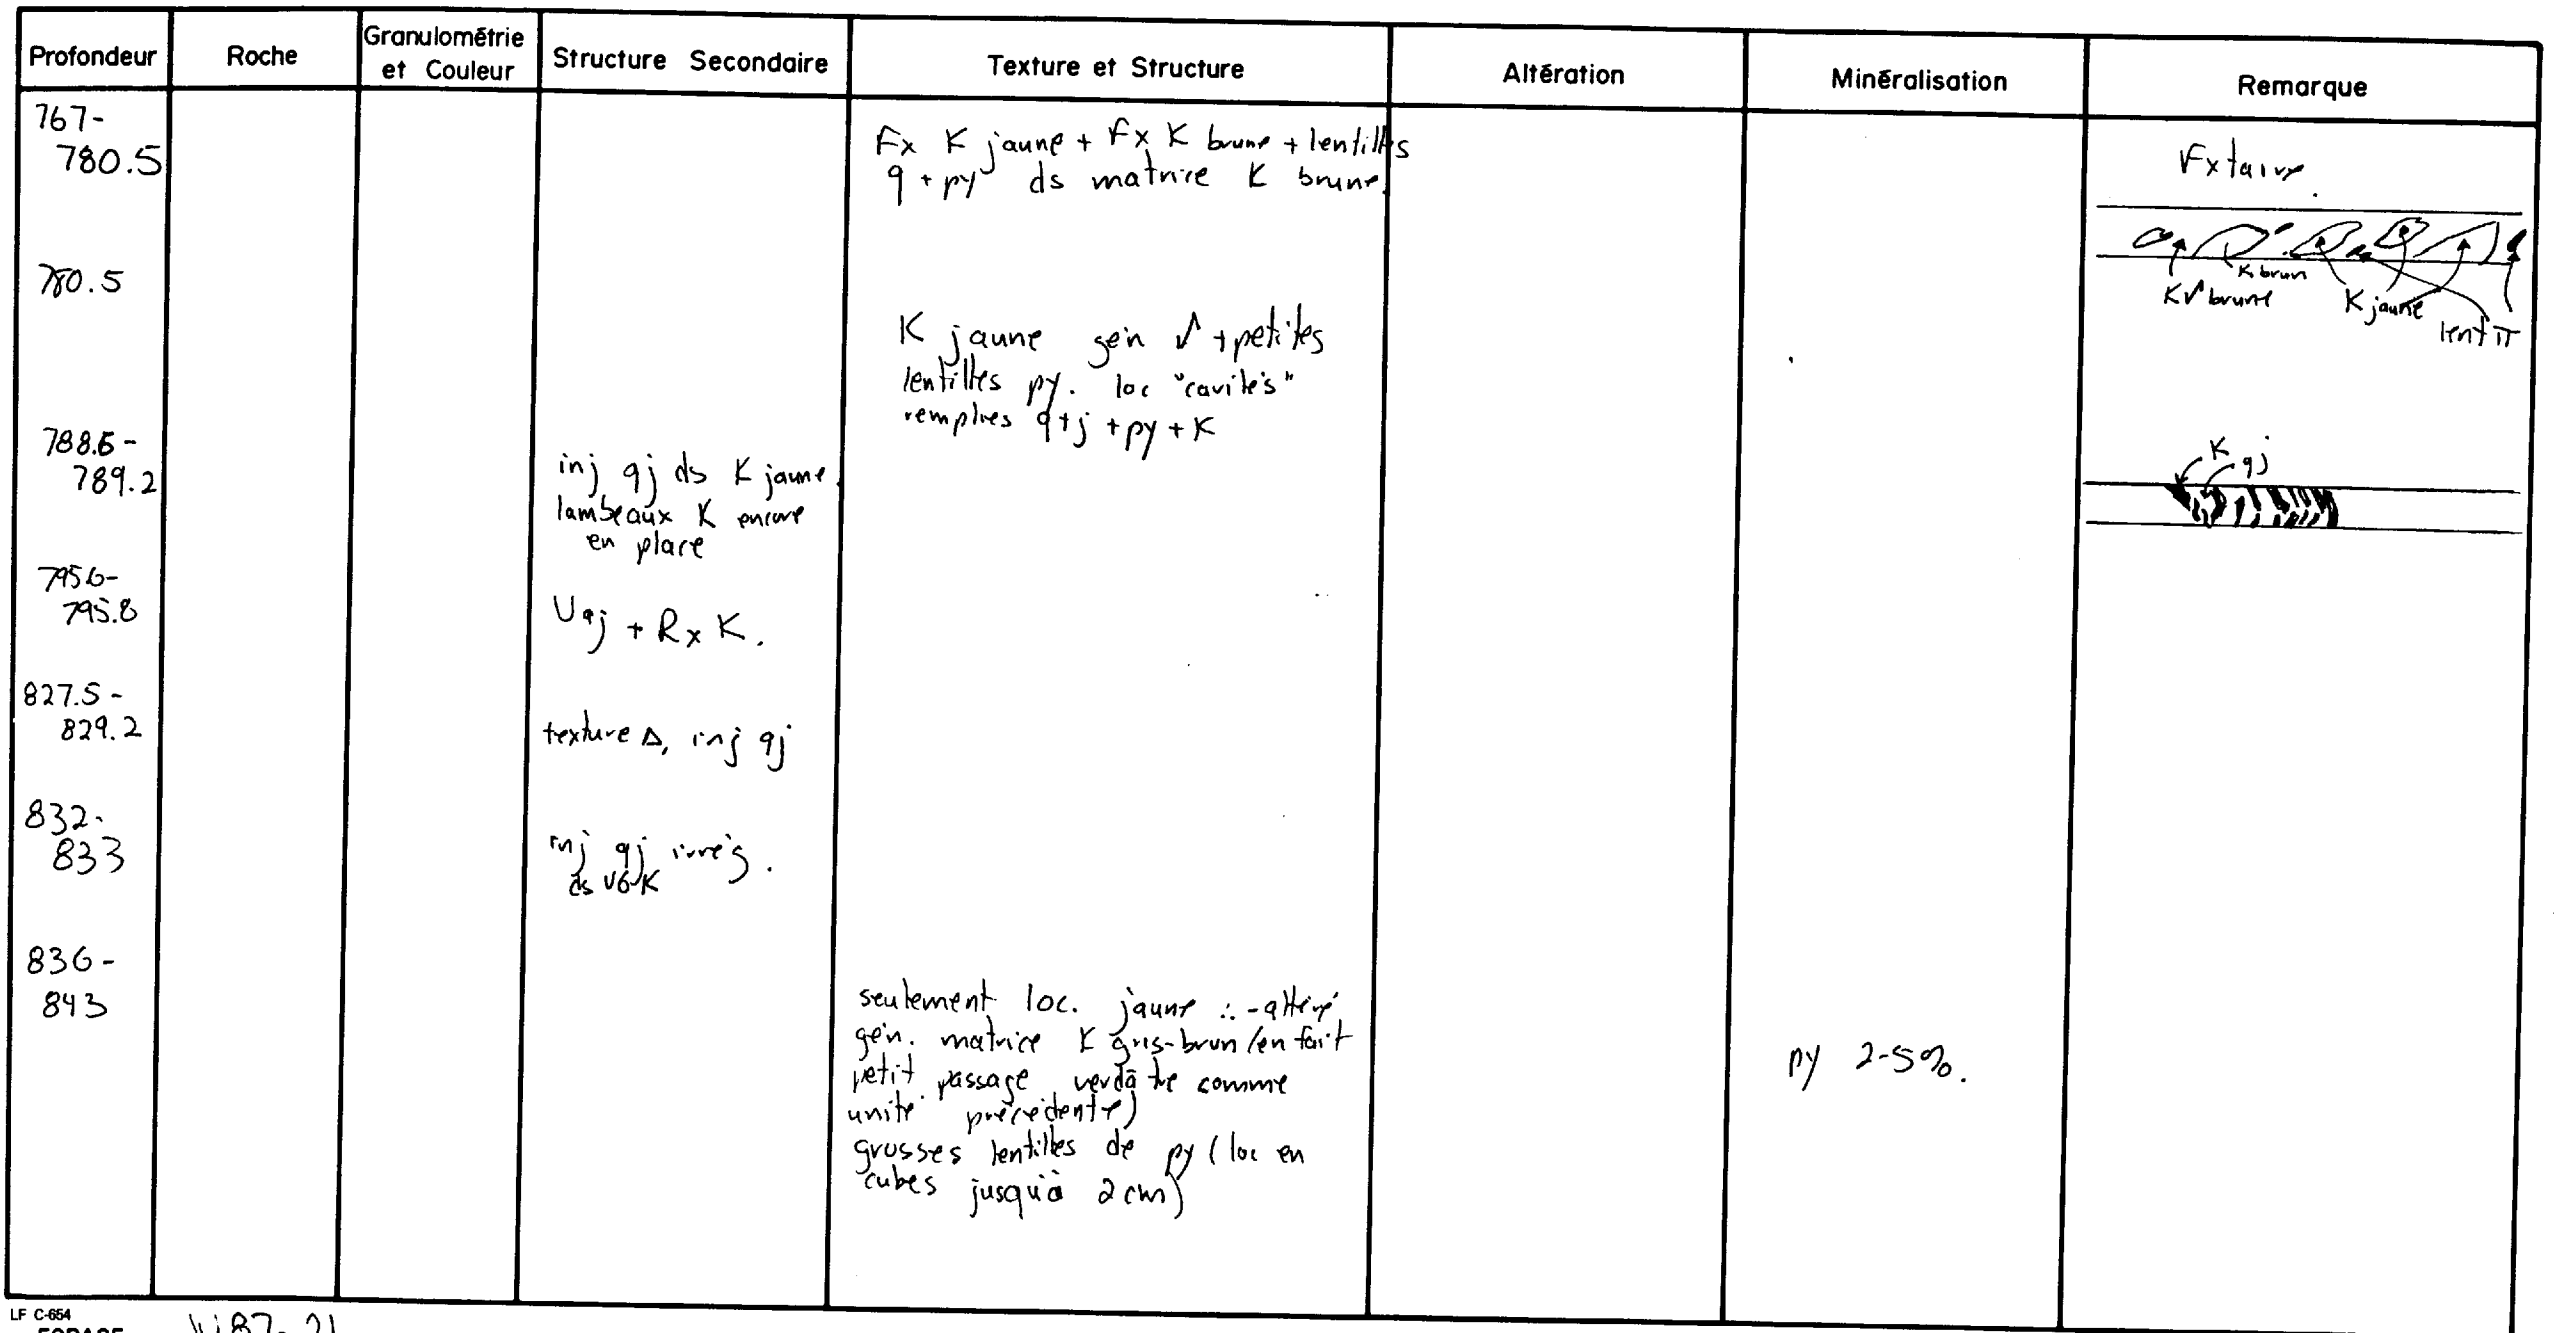 Profondeur Roche Granulométrie et Couleur Structure Secondaire Texture et Structure Altération Minéralisation Remarque
767-
780.5
Fx K jaune + Fx K brune + lentilles
q + py ds matrice K brune
Fxtaire
K brun
K brune
K jaune
lent π
780.5
K jaune gén + petites
lentilles py. loc "cavités"
remplies q+j + py + K
788.6-
789.2
inj qj ds K jaune.
lambeaux K encore
en place
K
qj
795.6-
795.8
Uqj + Rx K.
827.5-
829.2
texture Δ, inj qj
832-
833
inj qj irrég.
ds V6 K
836-
843
seulement loc. jaune ∴ - altéré
gén. matrice K gris-brun (en fait
petit passage verdâtre comme
unité précédente)
grosses lentilles de py (loc en
cubes jusqu'à 2 cm)
py 2-5%.
LF C-654